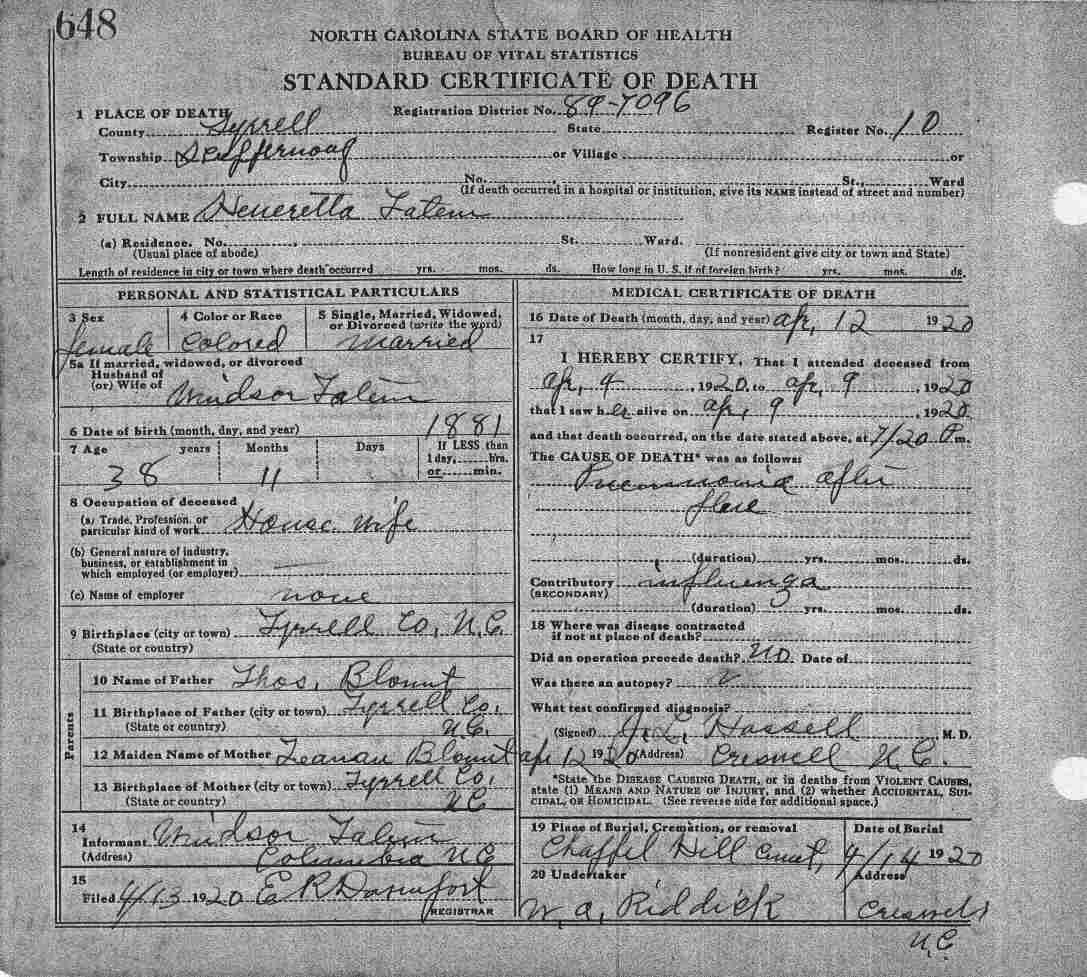 648
NORTH CAROLINA STATE BOARD OF HEALTH
BUREAU OF VITAL STATISTICS
STANDARD CERTIFICATE OF DEATH
1 PLACE OF DEATH Registration District No. 89-7096
County Tyrrell State Register No. 10
Township or Village or
City No. St., Ward
(If death occurred in a hospital or institution, give its NAME instead of street and number)
2 FULL NAME Heneretta Tatem
(a) Residence. No. , St. Ward.
(Usual place of abode) (If nonresident give city or town and State)
Length of residence in city or town where death occurred yrs. mos. ds. How long in U. S. if of foreign birth? yrs. mos. ds.
PERSONAL AND STATISTICAL PARTICULARS
3 Sex 4 Color or Race 5 Single, Married, Widowed, or Divorced (write the word)
female Colored Married
5a If married, widowed, or divorced
Husband of
(or) Wife of Windsor Tatem
6 Date of birth (month, day, and year) 1881
7 Age years Months Days If LESS than 1 day, hrs. or min.
38 11
8 Occupation of deceased
(a) Trade, Profession, or
particular kind of work House wife
(b) General nature of industry,
business, or establishment in
which employed (or employer)
(c) Name of employer none
9 Birthplace (city or town) Tyrrell Co, N.C.
(State or country)
Parents
10 Name of Father Thos. Blount
11 Birthplace of Father (city or town) Tyrrell Co.
(State or country) N.C.
12 Maiden Name of Mother Blount
13 Birthplace of Mother (city or town) Tyrrell Co,
(State or country) N C
14
Informant Windsor Tatem
(Address) Columbia N C
15
Filed 4/13 1920 E R Davenport
REGISTRAR
MEDICAL CERTIFICATE OF DEATH
16 Date of Death (month, day, and year) Apr, 12 1920
17
I HEREBY CERTIFY, That I attended deceased from
Apr, 4, 1920, to Apr, 9, 1920
that I saw her alive on Apr, 9, 1920
and that death occurred, on the date stated above, at 7/20 P.m.
The CAUSE OF DEATH* was as follows:
Pneumonia after
flue
(duration) yrs. mos. ds.
Contributory influenza
(SECONDARY)
(duration) yrs. mos. ds.
18 Where was disease contracted
if not at place of death?
Did an operation precede death? No. Date of
Was there an autopsy?
What test confirmed diagnosis?
(Signed) J. L. Hassell, M. D.
Apr 12 1920 (Address) Creswell N.C.
*State the DISEASE CAUSING DEATH, or in deaths from VIOLENT CAUSES,
state (1) MEANS AND NATURE OF INJURY, and (2) whether ACCIDENTAL, SUI-
CIDAL, OR HOMICIDAL. (See reverse side for additional space.)
19 Place of Burial, Cremation, or removal Date of Burial
Chappel Hill Cemet, 4/14 1920
20 Undertaker Address
W. A. Riddick Creswell
N.C.